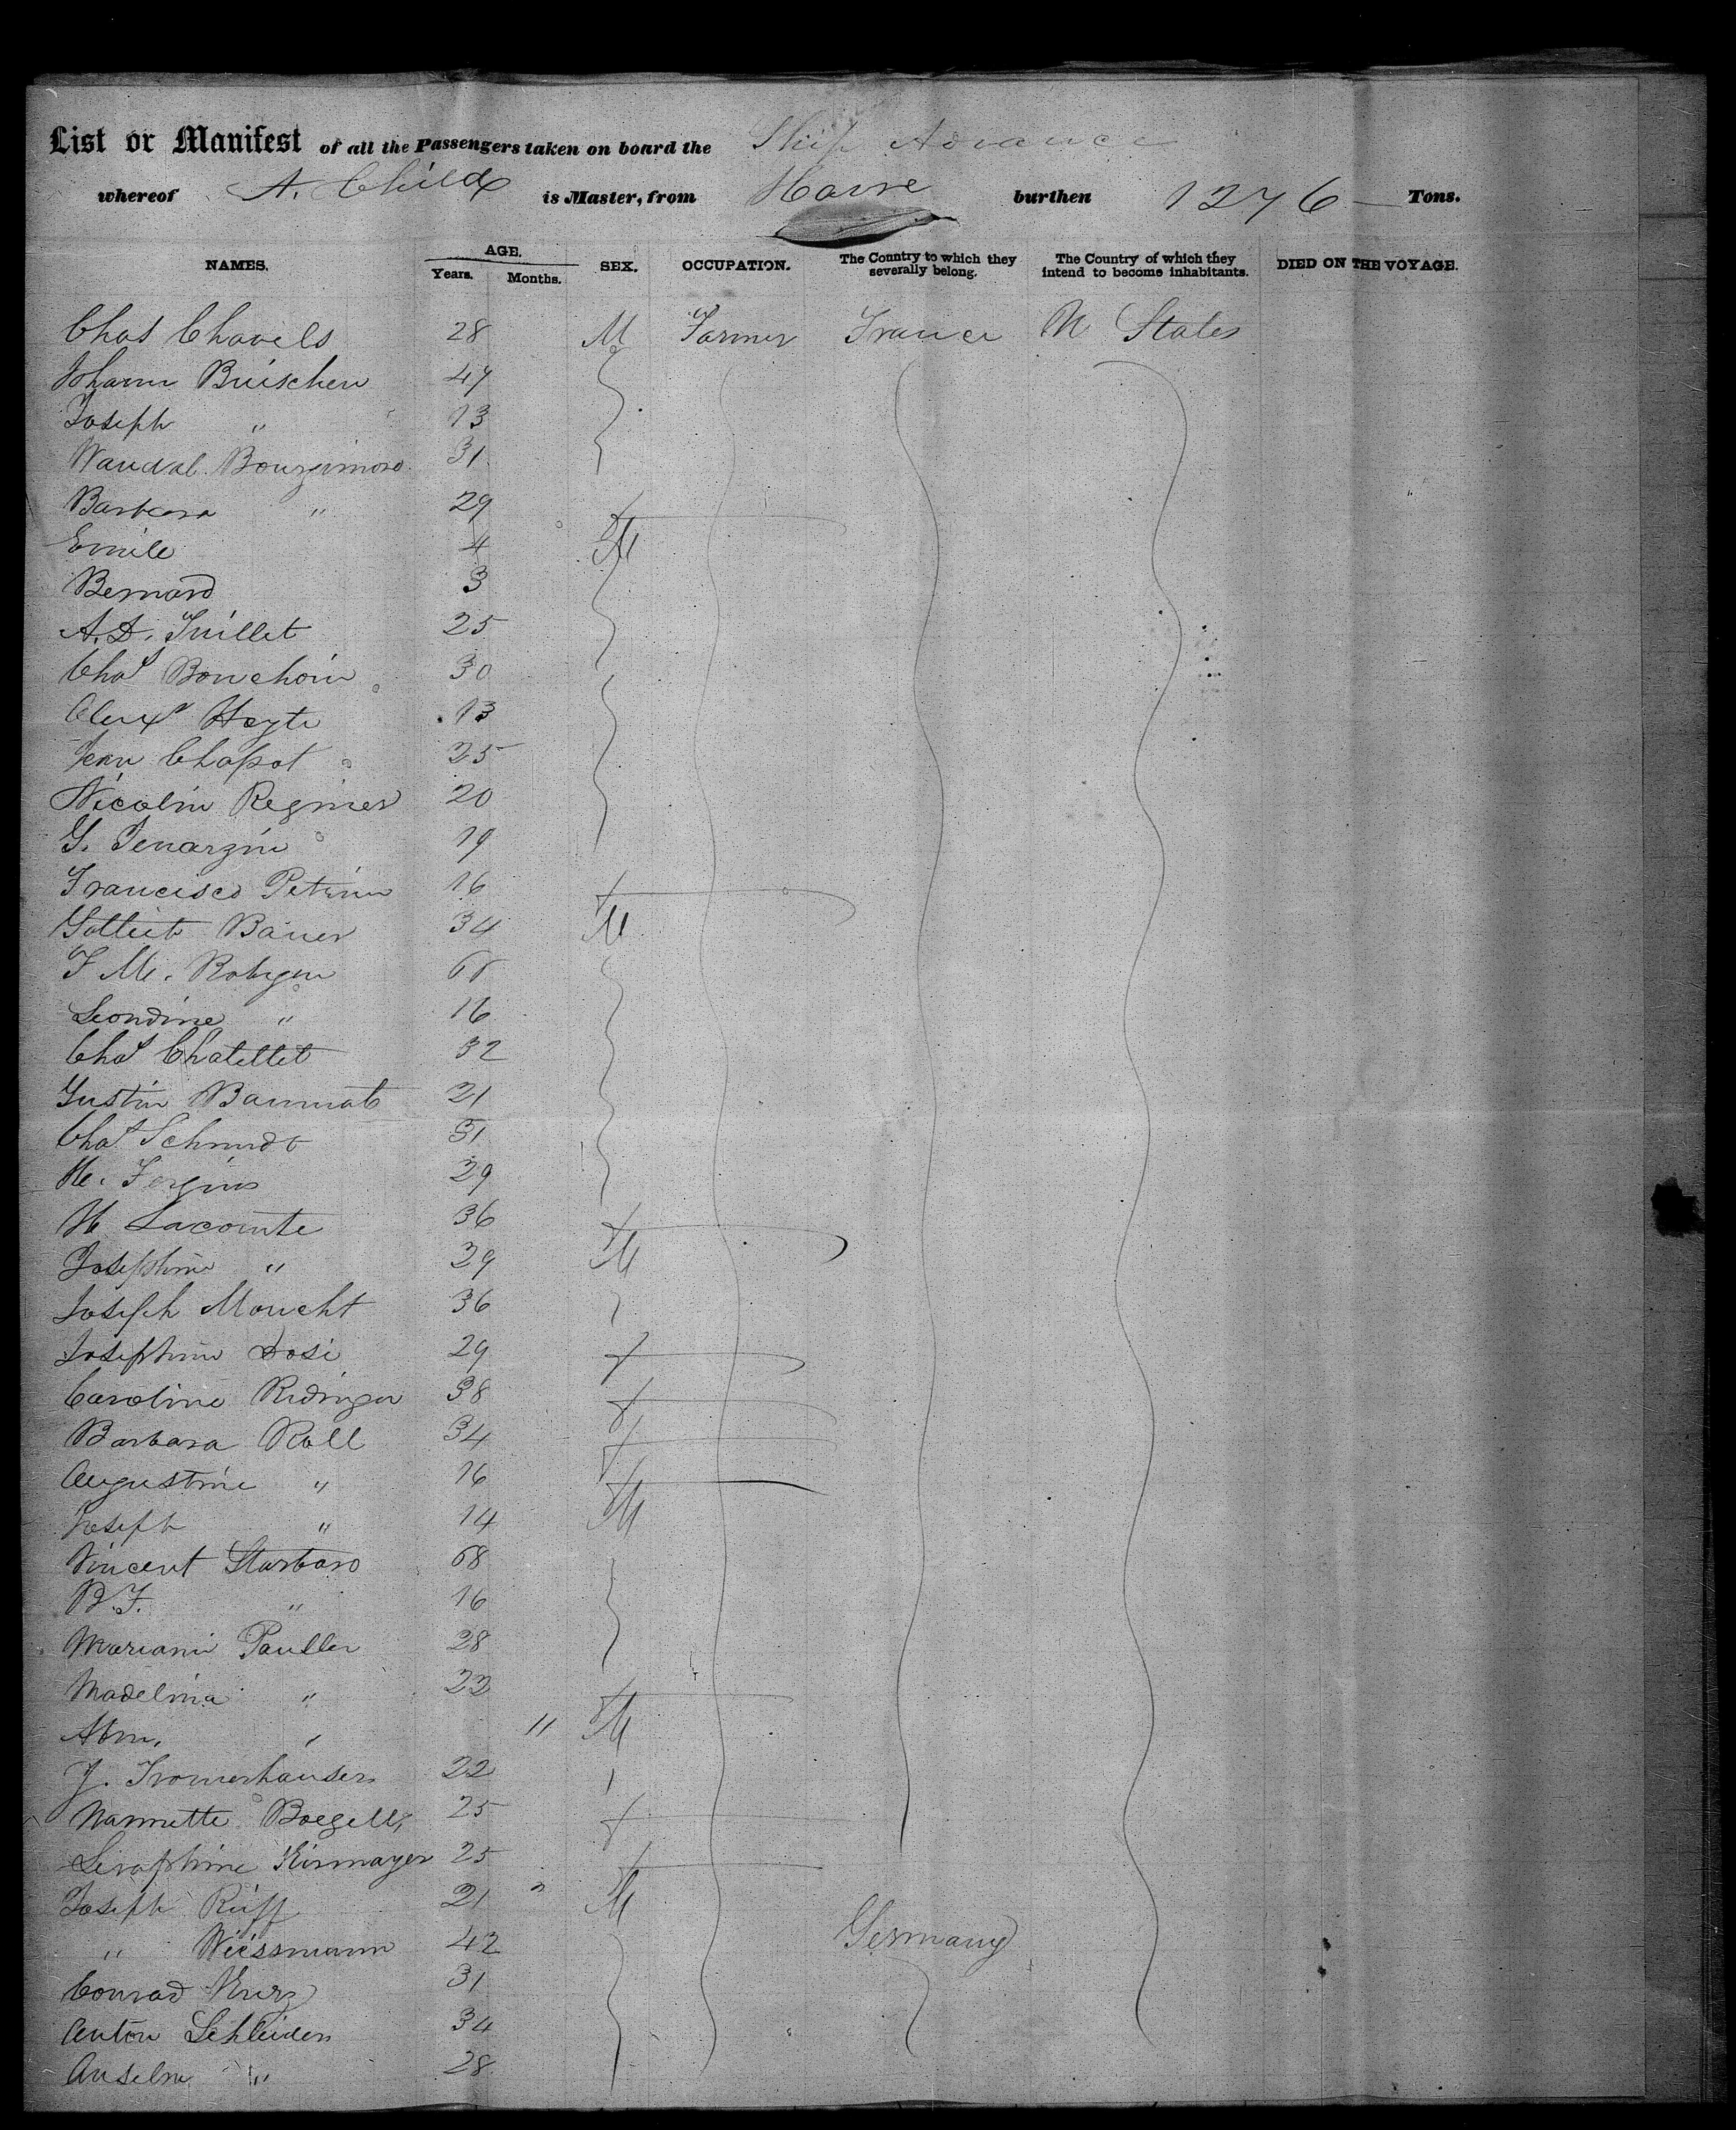 List or Manifest of all the Passengers taken on board the Ship Advance
whereof A. Child is Master, from Havre burthen 1276 Tons.
NAMES. AGE. Years. Months. SEX. OCCUPATION. The Country to which they severally belong. The Country of which they intend to become inhabitants. DIED ON THE VOYAGE.
Chas Chavels 28 M Farmer France U States
Johann Buischen 47
Joseph " 13
Wandal 31
Barbara " 29 f
Emile 4 M
Bernard 3
A. D. Juillet 25
Chas Bouchoin 30
Alexr Hayte 13
Jean Chapot 25
Nicolin Regnier 20
G. Tenarzin 19
Francisco Petrinn 16 f
Gotleit Bauer 34 M
F M. Robygen
Leondine " 16
Chas Chatellet 32
Justin Baumnat 21
Chas Schmidt 31
29
H Lacomte 36
Josephine " 29 f
Joseph Moucht 36 M
Josephine Dosi 29 f
Caroline Ridinger 38 f
Barbara Roll 34 f
Augustine " 16 f
Joseph " 14 M
Vincent Starbaro 68
B. F. " 16
Mariani Pauller 28
Madelina " 22 f
Abm. " 11 M
J. Tromerhauser 22
Nannette Boegell 25 f
Seraphine Kirmayer 25 f
Joseph Ruff 21 " M
" Weissmann 42 Germany
Conrad Kurz 31
Anton Schleiden 34
Anselm " 28